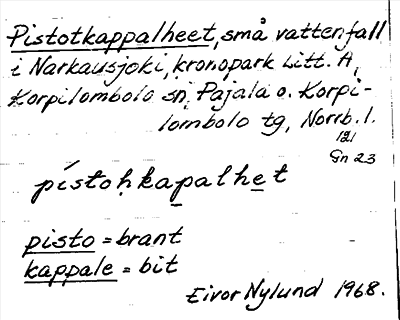 Pistotkappalheet, små vattenfall
i Narkausjoki, kronopark Litt. A,
Korpilombolo sn, Pajala o. Korpi-
lombolo tg, Norrb. l.
121
Gn 23
pístoḥkapalhet
pisto = brant
kappale = bit
Eivor Nylund 1968.